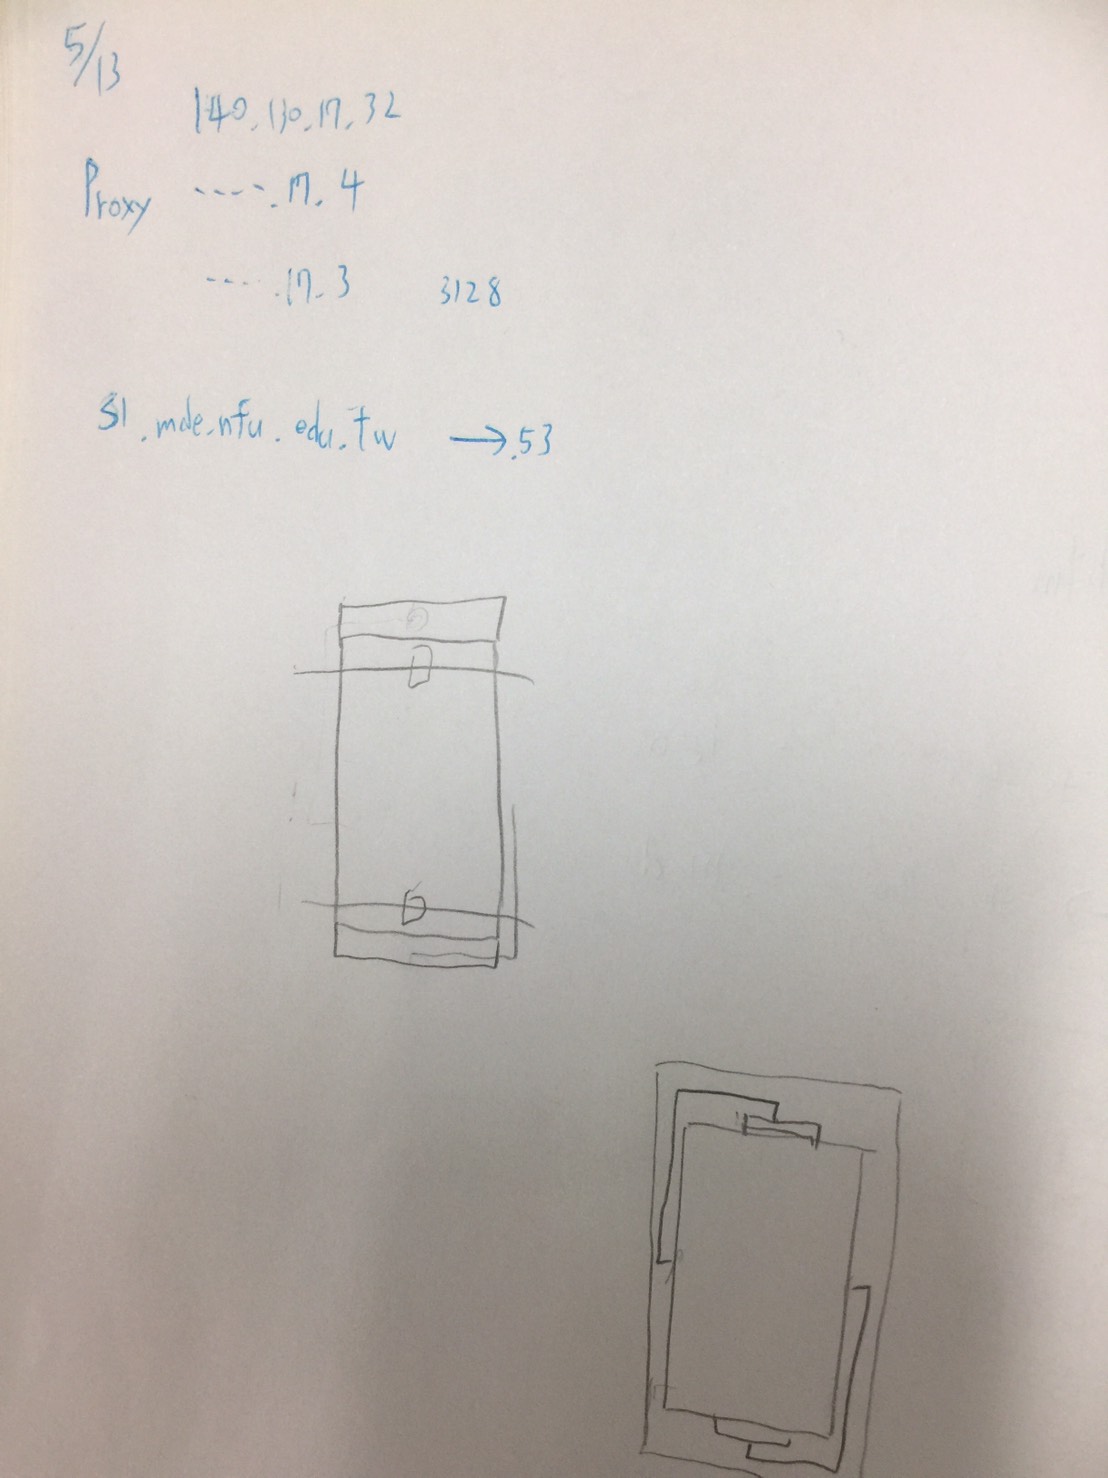 5/13
140.130.17.32
Proxy ----.17.4
----.17.3 3128
S1.mde.nfu.edu.tw →.53